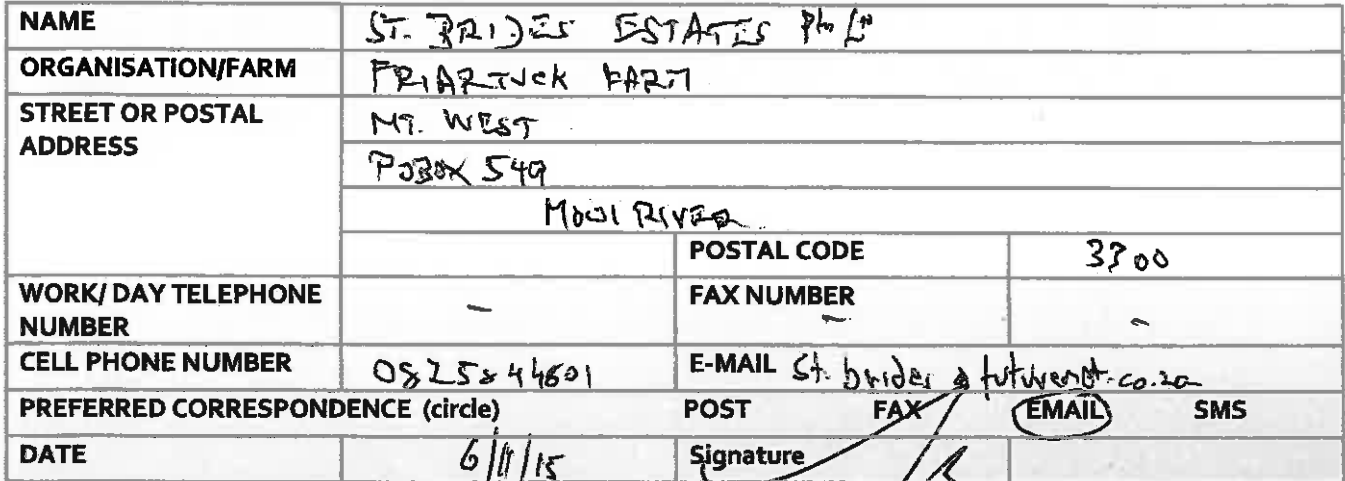 NAME ST. BRIDES ESTATES Pty Ltd
ORGANISATION/FARM FRIARTUCK FARM
STREET OR POSTAL MT. WEST
ADDRESS
POBOX 549
MOOI RIVER
POSTAL CODE 3300
WORK/ DAY TELEPHONE - FAX NUMBER - -
NUMBER
CELL PHONE NUMBER 0825844601 E-MAIL St.brides @ futurenet.co.za
PREFERRED CORRESPONDENCE (circle) POST FAX EMAIL SMS
DATE 6/11/15 Signature